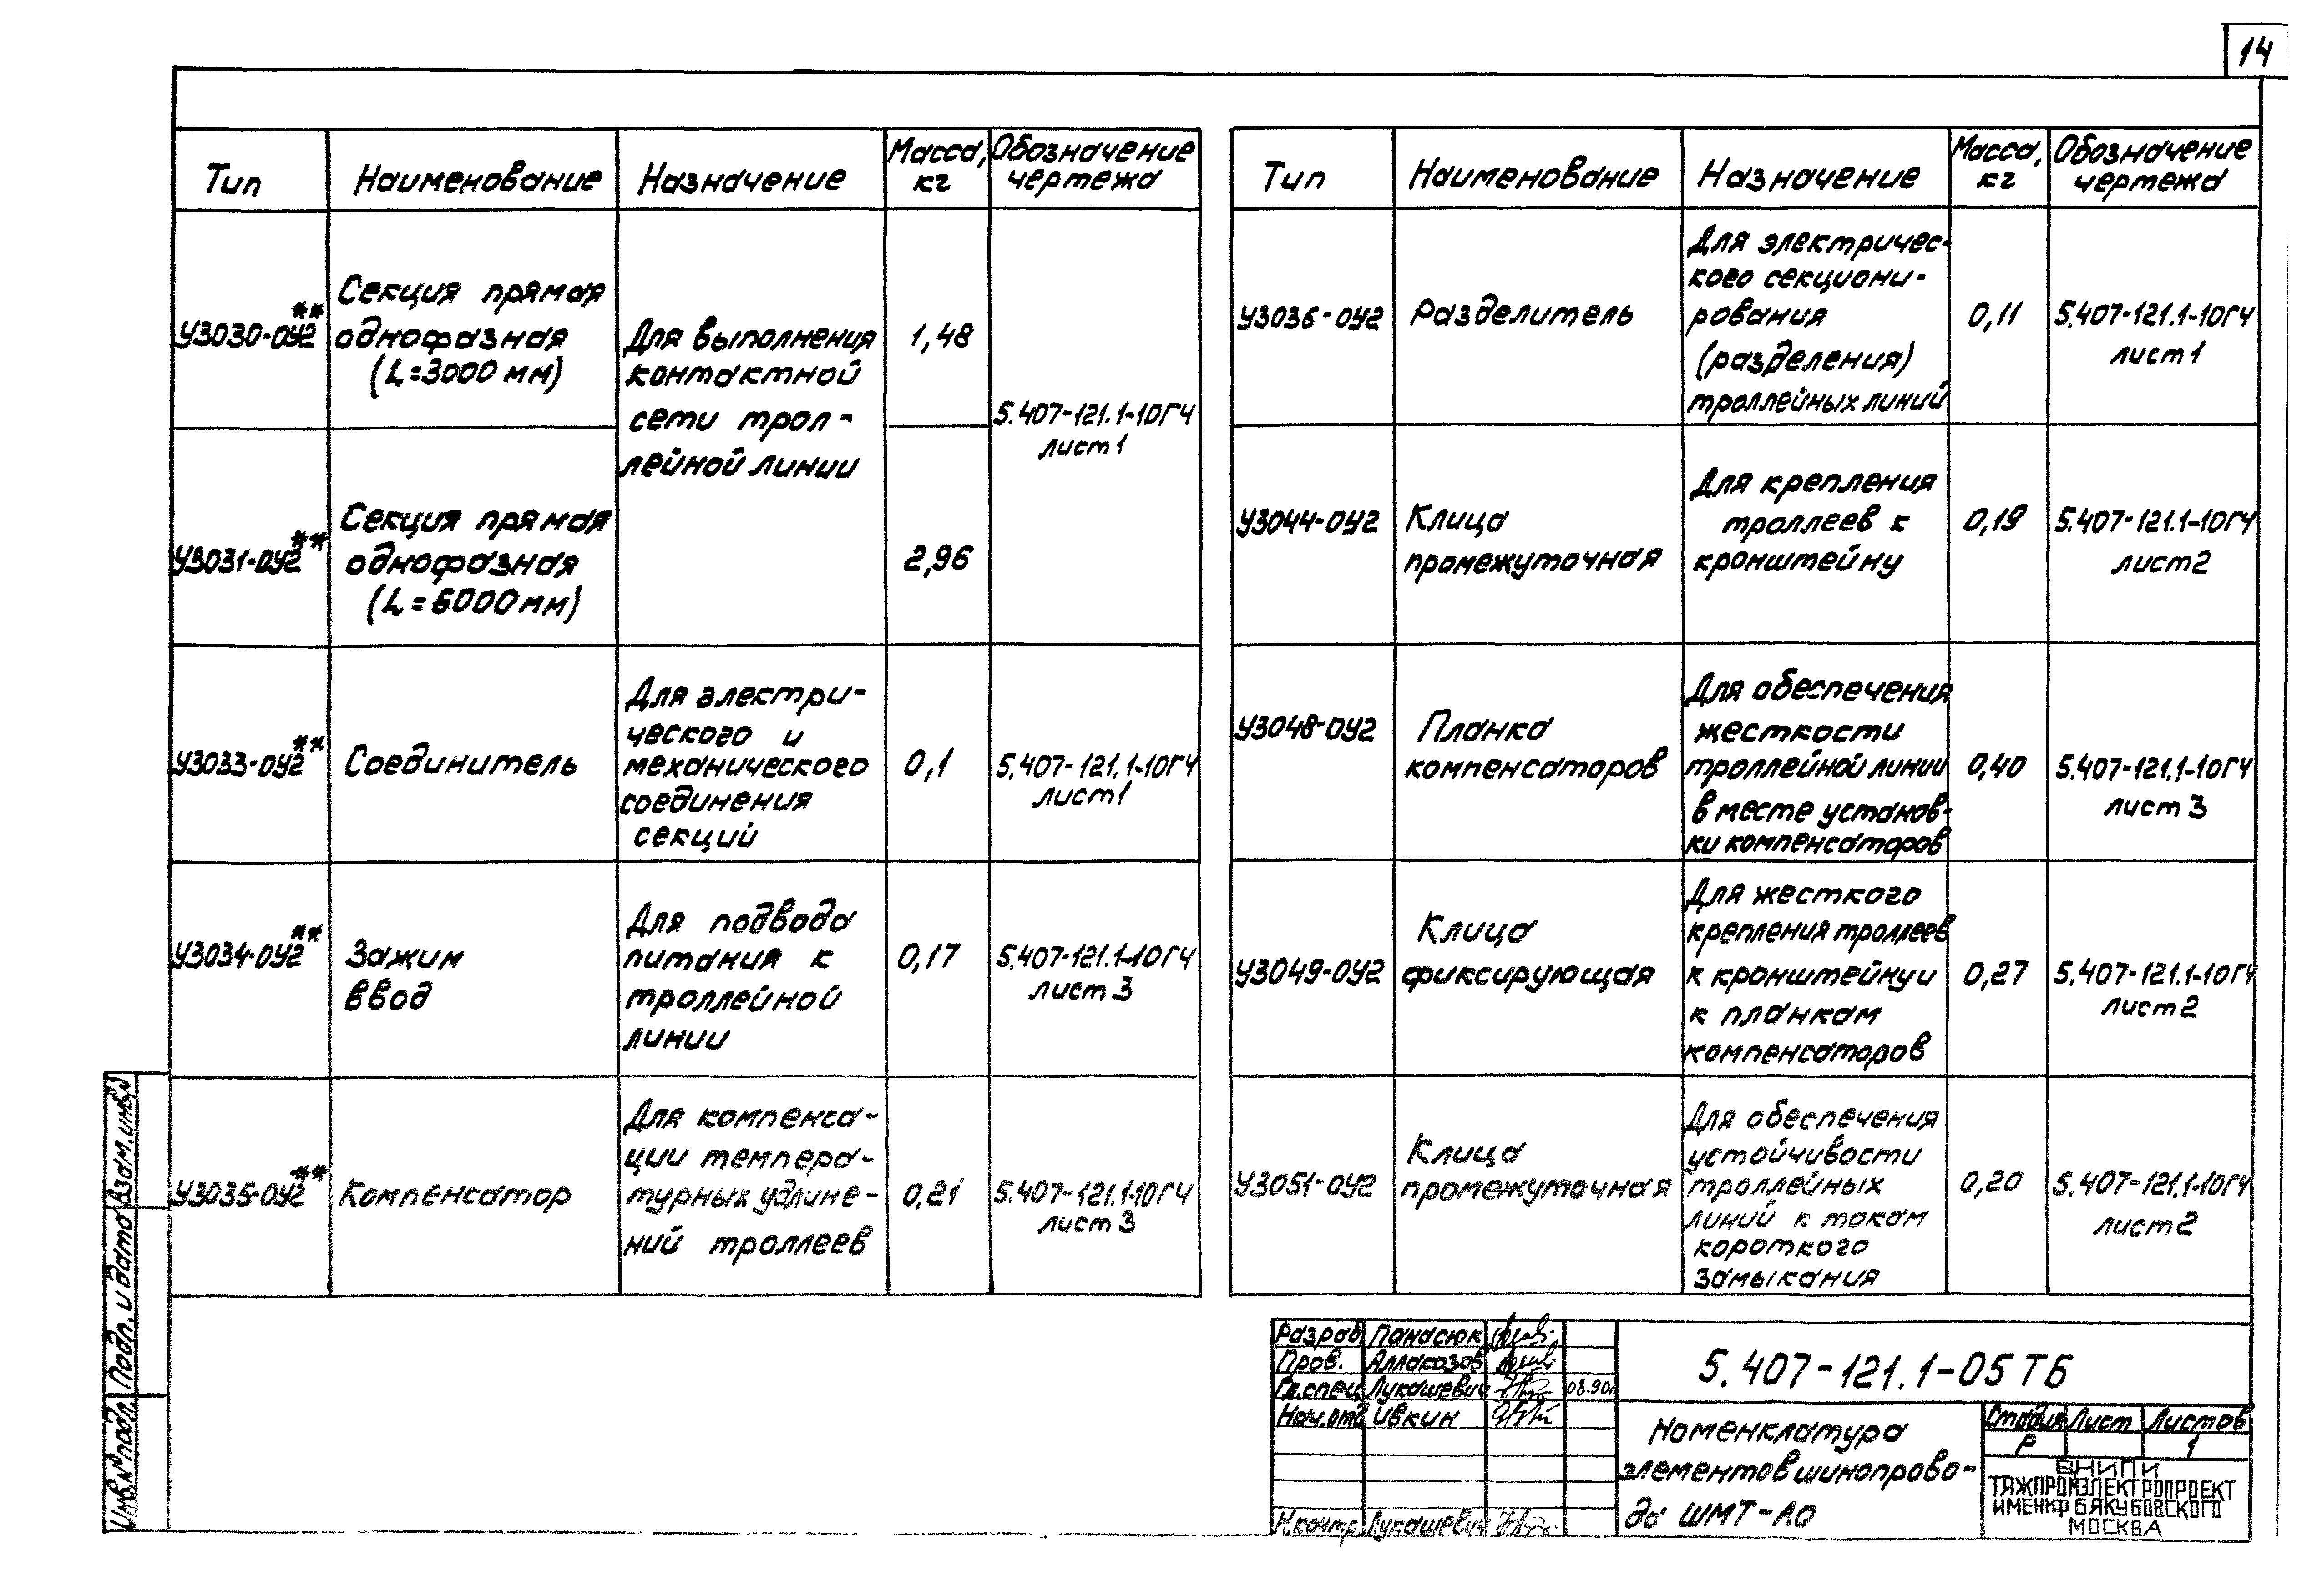 14
Тип
Наименование
Назначение
Масса,
кг
Обозначение
чертежа
У3030-ОУ2**
Секция прямая
однофазная
(L=3000 мм)
Для выполнения
контактной
сети трол-
лейной линии
1,48
5.407-121.1-10ГЧ
лист 1
У3031-ОУ2**
Секция прямая
однофазная
(L=6000 мм)
2,96
У3033-ОУ2**
Соединитель
Для электри-
ческого и
механического
соединения
секций
0,1
5.407-121.1-10ГЧ
лист 1
У3034-ОУ2**
Зажим
ввод
Для подвода
питания к
троллейной
линии
0,17
5.407-121.1-10ГЧ
лист 3
У3035-ОУ2**
Компенсатор
Для компенса-
ции темпера-
турных удлине-
ний троллеев
0,21
5.407-121.1-10ГЧ
лист 3
Тип
Наименование
Назначение
Масса,
кг
Обозначение
чертежа
У3036-ОУ2
Разделитель
Для электричес-
кого секциони-
рования
(разделения)
троллейных линий
0,11
5.407-121.1-10ГЧ
лист 1
У3044-ОУ2
Клица
промежуточная
Для крепления
троллеев к
кронштейну
0,19
5.407-121.1-10ГЧ
лист 2
У3048-ОУ2
Планка
компенсаторов
Для обеспечения
жесткости
троллейной линии
в месте установ-
ки компенсаторов
0,40
5.407-121.1-10ГЧ
лист 3
У3049-ОУ2
Клица
фиксирующая
Для жесткого
крепления троллеев
к кронштейну и
к планкам
компенсаторов
0,27
5.407-121.1-10ГЧ
лист 2
У3051-ОУ2
Клица
промежуточная
Для обеспечения
устойчивости
троллейных
линий к токам
короткого
замыкания
0,20
5.407-121.1-10ГЧ
лист 2
Взам. инв. №
Подп. и дата
Инв. № подл.
Разраб. Панасюк
Пров. Аллакозов
Гл. спец. Лукашевич 08.90г.
Нач. отд. Ивкин
Н.контр. Лукашевич
5.407-121.1-05 ТБ
Номенклатура
элементов шинопрово-
да ШМТ-АО
Стадия Лист Листов
Р 1
ВНИПИ
ТЯЖПРОМЭЛЕКТРОПРОЕКТ
ИМЕНИ Ф.Б.ЯКУБОВСКОГО
МОСКВА